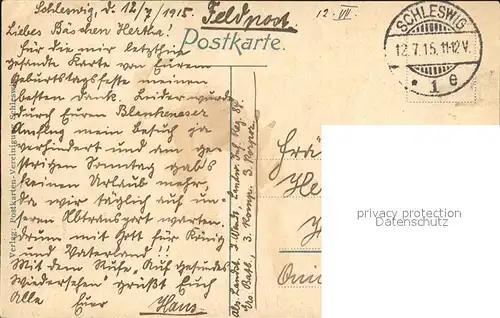 Schleswig, d. 12/7/1915. Feldpost.
12. VII.
Postkarte.
SCHLESWIG
12.7.15. 11-12V.
* 1 e
Liebes Bäschen Hertha!
Für die mir letzthin
gesandte Karte von Eurem
Geburtstagsfeste meinen
besten Dank. Leider wurde
durch Euren Blankeneser
Ausflug mein Besuch ja
verhindert und am gestrigen
Sonntag gab's
keinen Urlaub mehr,
da wir täglich auf unseren
Abtransport warten.
Drum mit Gott für König
und Vaterland!!
Mit dem Rufe "Auf gesundes
Wiedersehen" grüßt Euch
Alle Euer Hans.
Verlag: Postkarten-Vereinigung, Schleswig
Inf. Reg. 84.
Ers. Batl., 3. Komp. 3. Korpor.
Frä
He
protection privacy
Datenschutz